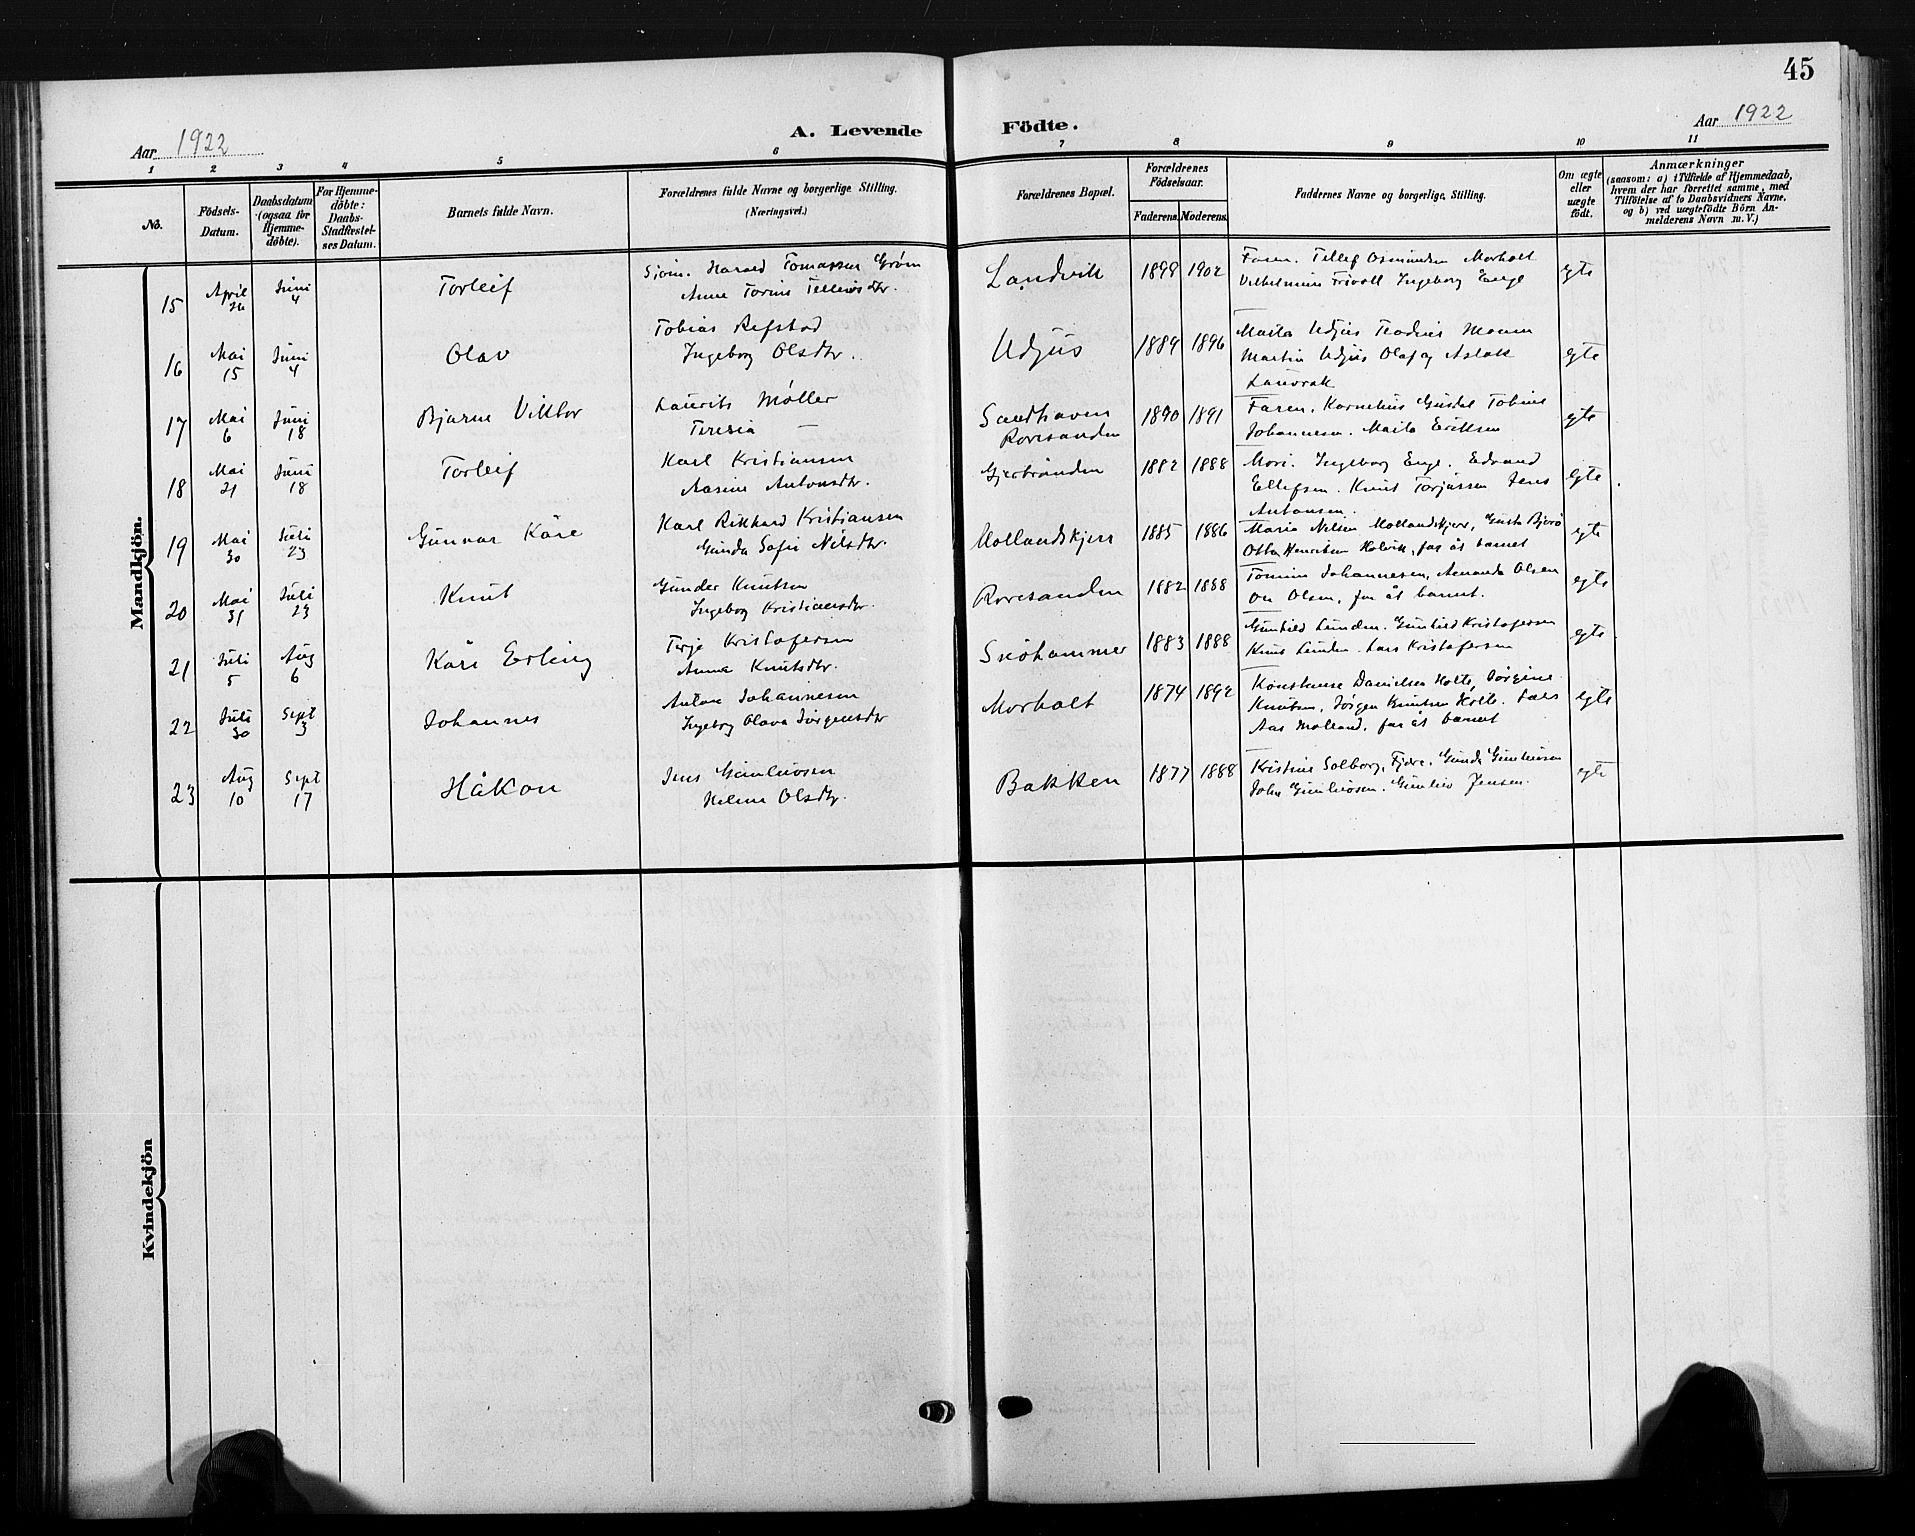 45
Aar 1922
A. Levende Födte.
Aar 1922
1 2 3 4 5 6 7 8 9 10 11
No.
Födsels-Datum.
Daabsdatum (ogsaa for Hjemmedöbte).
For Hjemmedöbte: Daabs-Stadfæstelses Datum.
Barnets fulde Navn.
Forældrenes fulde Navne og borgerlige Stilling. (Næringsvei.)
Forældrenes Bopæl.
Forældrenes Födselsaar.
Faderens. Moderens.
Faddernes Navne og borgerlige Stilling.
Om ægte eller uægte födt.
Anmærkninger
(saasom: a) i Tilfælde af Hjemmedaab,
hvem der har forrettet samme, med
Tilföielse af to Daabsvidners Navne,
og b) ved uægtefödte Börn Anmelderens Navn m. V.)
Mandkjön.
15 April 26 Juni 4 Torleif
Sjöm. Harald Tomassen Gröm
Anne Torine Tellefsdtr.
Landvik 1898 1902
Faren. Tellef Osmundsen Morholt
Vilhelmine Frivoll Ingeborg Enge
egte
16 Mai 15 Juni 4 Olav
Tobias Refstad
Ingeborg Olsdtr.
Udjus 1889 1896
Maila Udjus Moen
Martin Udjus Olaf og Aslak
Landvik
egte
17 Mai 6 Juni 18 Bjarne Viktor
Laurits Møller
Teresia —
Sandhaven
Roresanden 1890 1891
Faren. Kornelius Tobias
Johannesen. Maila Eriksen
egte
18 Mai 21 Juni 18 Torleif
Karl Kristiansen
Aasine Antonsdtr.
Gjerbrönden 1882 1888
Mori. Ingeborg Enge. Edvard
Ellefsen. Knut Torjussen Jens
Antonsen.
egte
19 Mai 30 Juli 23 Gunnar Kåre
Karl Rikhard Kristiansen
Gunda Sofie Nilsdtr.
Mollandskjerr 1885 1886
Maria Nelsen Mollandskjerr, Gusta
Otto Henriksen Holvik, far åt barnet
egte
20 Mai 31 Juli 23 Knut
Gunder Knutsen
Ingeborg Kristiansdtr.
Roresanden 1882 1888
Tomine Johannesen, Amanda Olsen
Ole Olsen, far åt barnet.
egte
21 Juli 5 Aug 6 Kåre Erling
Terje Kristofersen
Anna Knutsdtr.
Snöhammer 1883 1888
Gunhild Lunden. Gunhild Kristofersen
Knut Lunden. Lars Kristofersen
egte
22 Juli 30 Sept 3 Johannes
Anton Johannesen
Ingeborg Olava Jörgensdtr
Morholt 1874 1892
Konstanse Danielsen Holte, Jörgine
Knutsen, Jörgen Knutsen Holte. Lars
Aas Molland, far åt barnet
egte
23 Aug 10 Sept 17 Håkon
Jens Gunleiosen
Helene Olsdtr.
Bakken 1877 1888
Kristine Solborg, Fjære, Gunda Gunleiosen
John Gunleiosen. Gunleio Jensen.
egte
Kvindekjön